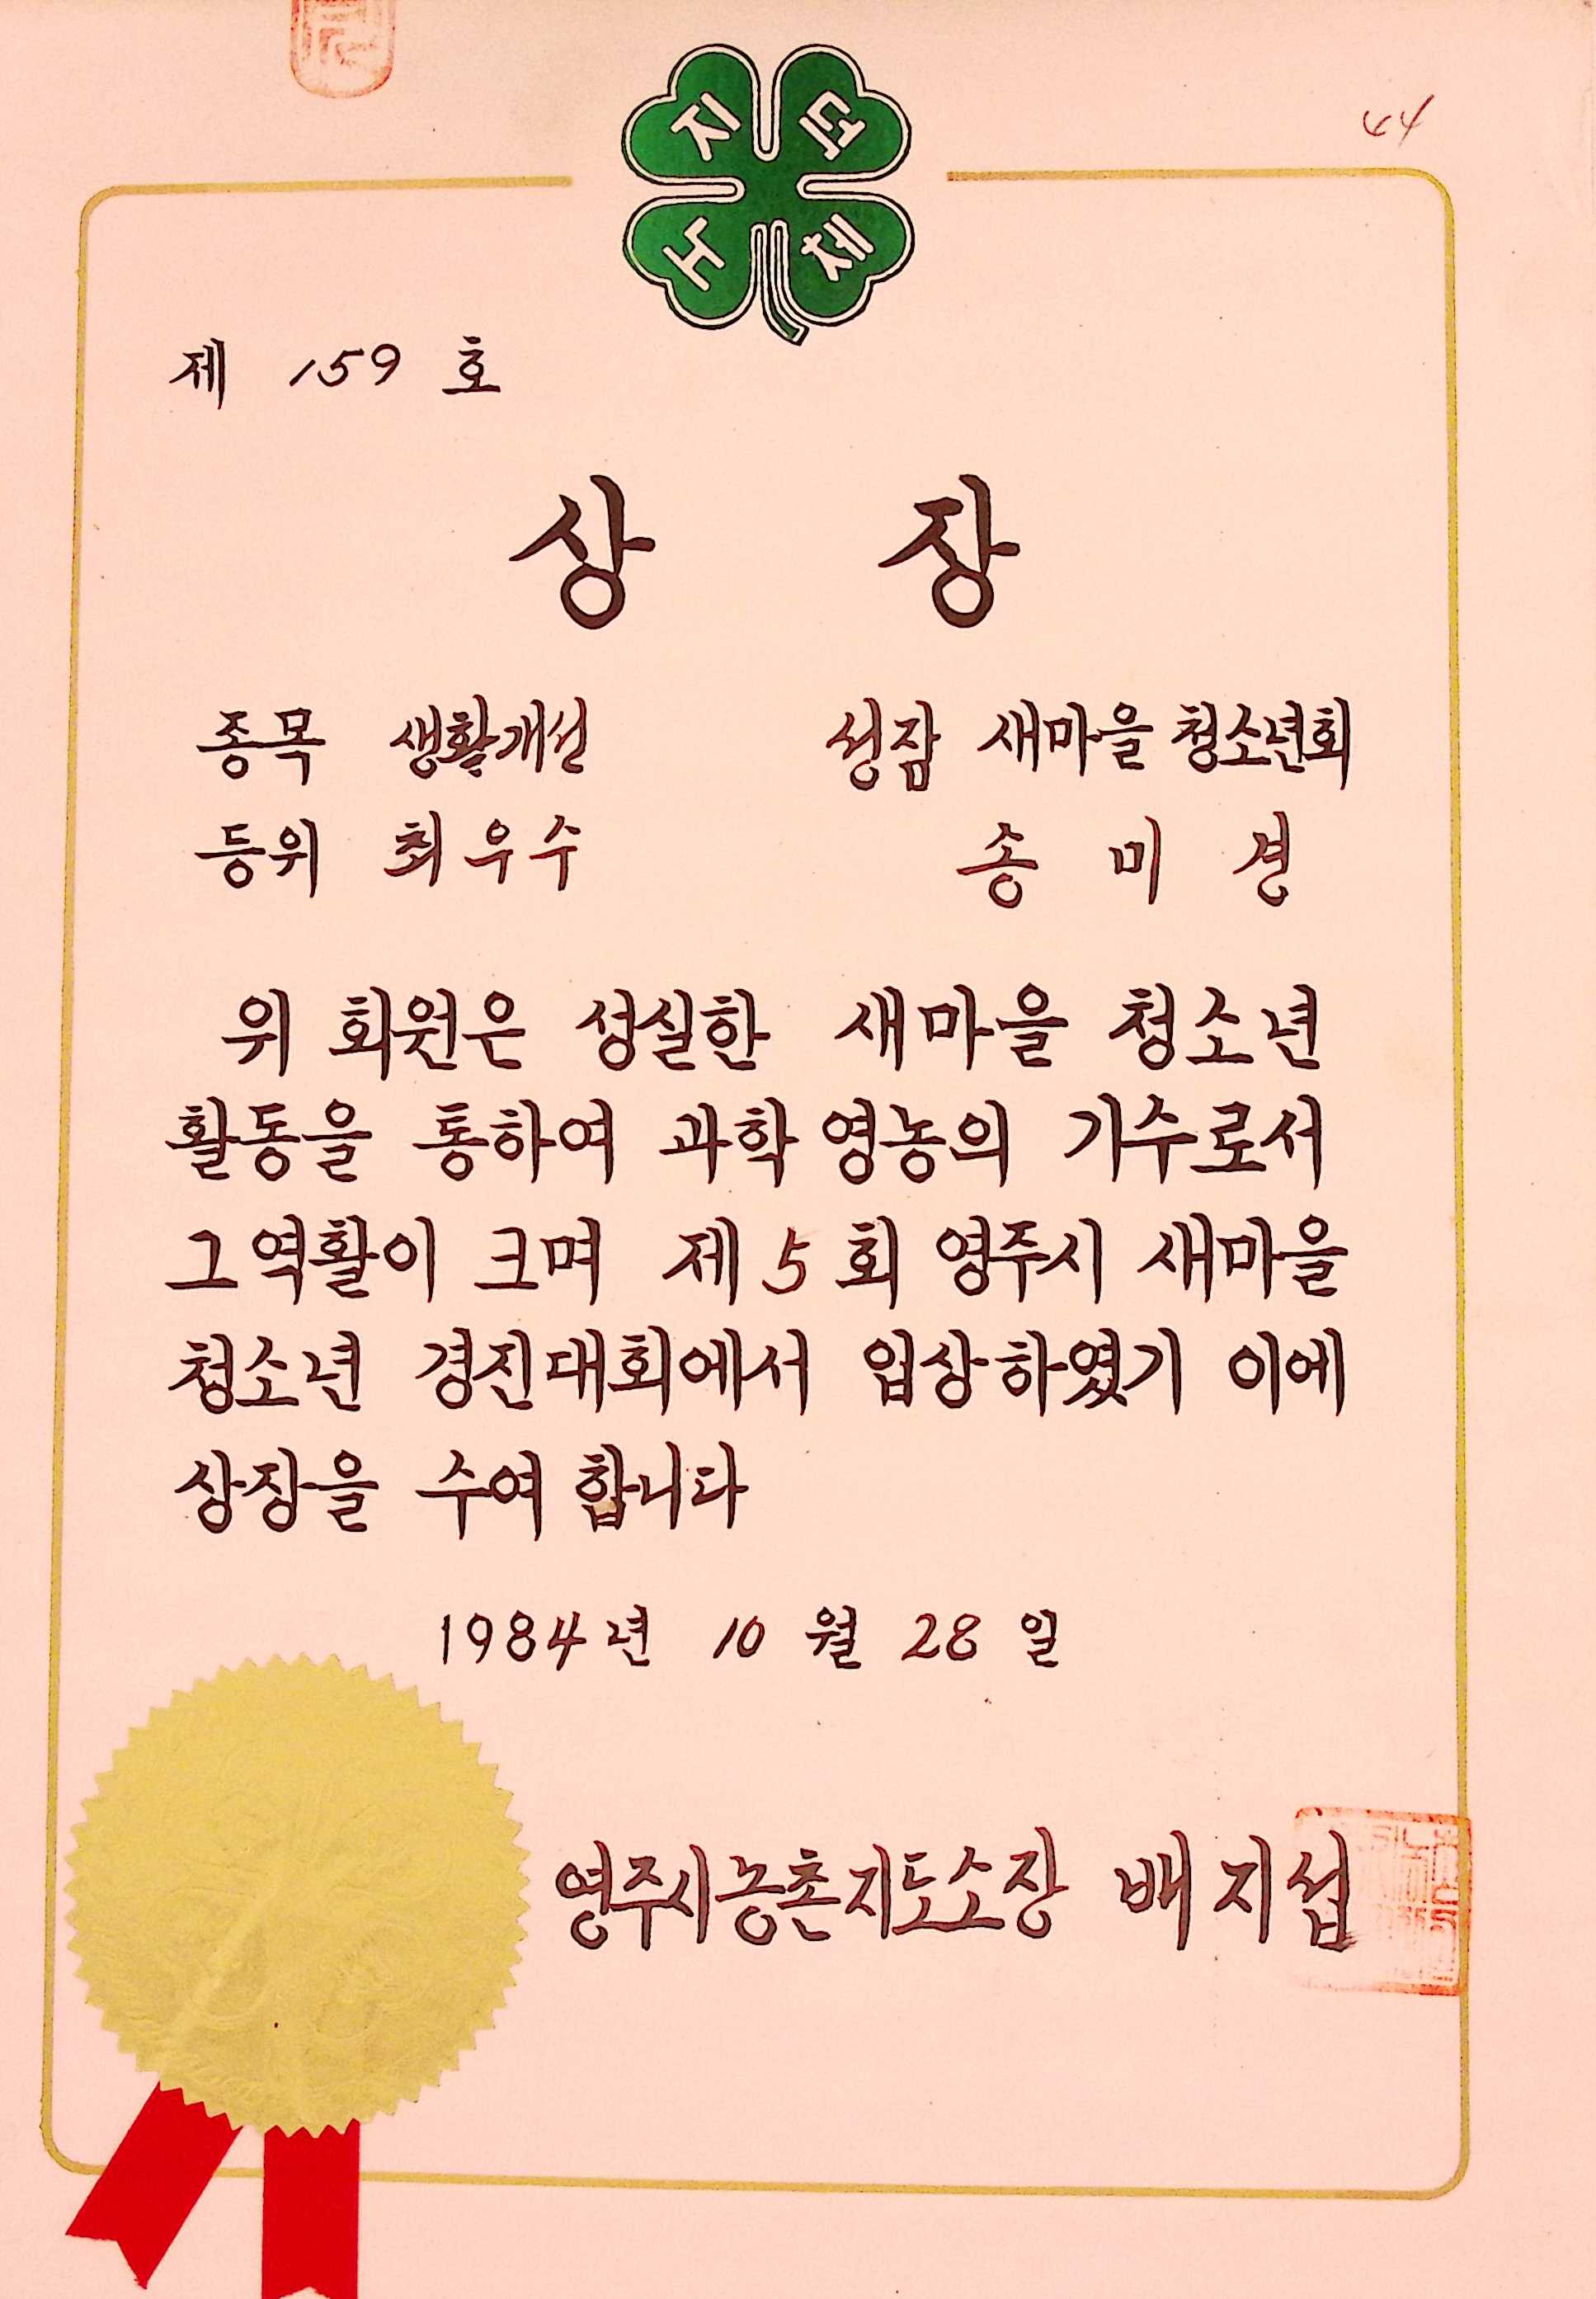 44
지 덕
노 체
제 159 호
상 장
종목 생활개선 성잠 새마을 청소년회
등위 최우수 송 미 경
위 회원은 성실한 새마을 청소년
활동을 통하여 과학 영농의 기수로서
그 역활이 크며 제 5 회 영주시 새마을
청소년 경진대회에서 입상하였기 이에
상장을 수여 합니다
1984년 10 월 28 일
영주시농촌지도소장 배지섭